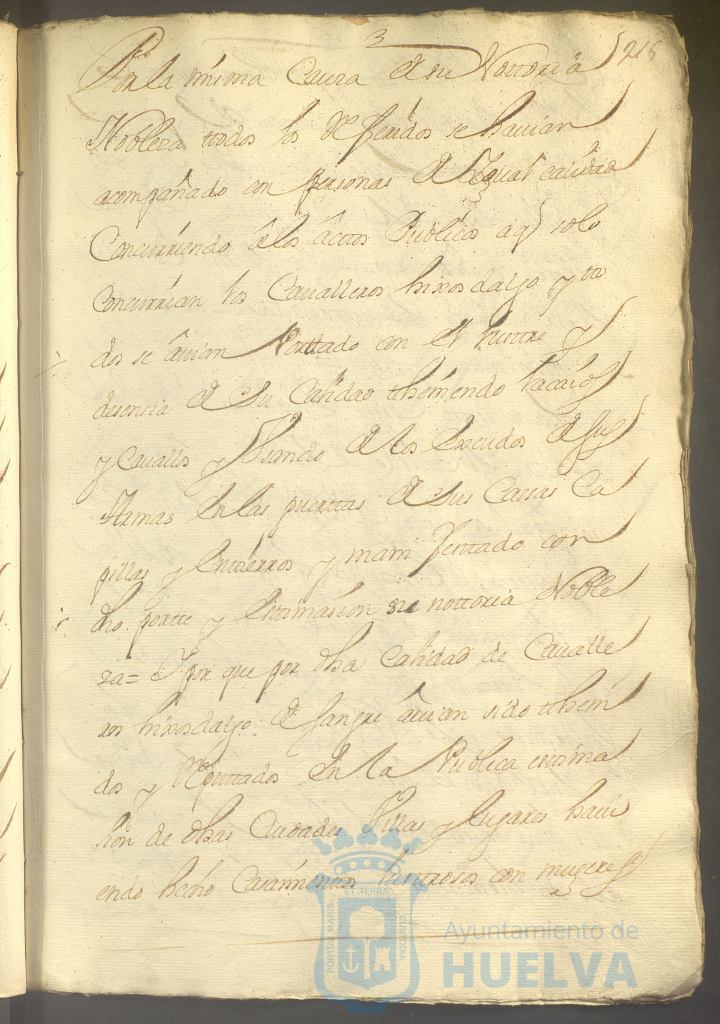 3
216
Por la misma Causa de su Nottoria
Nobleza ttodos los Referidos se hauian
acompañado con personas de Igual calidad
Concurriendo â los âctos Publicos aq̃ solo
Concurrian los Caualleros hixosdalgo y tto
dos se âuian Porttado con el lustre y
desencia de su Calidad theniendo lacaios
y Cauallos y Usando de los Escudos de sus
Armas En las puerttas de sus Cassas Ca
pillas y Entierros y mani festado con
dho portte y Estimasion su nottoria Noble
za= Y por que por dha Calidad de Caualle
ros hixosdalgo de sangre âuian sido theni
dos y Reputtados En la Publica estima
sion de dhas Ciudades Villas y lugares haui
endo hecho Casamientos lustrosos con mugeres
PORTUS MARIS
ET TERRAE
CUSTODIA
Ayuntamiento de
HUELVA